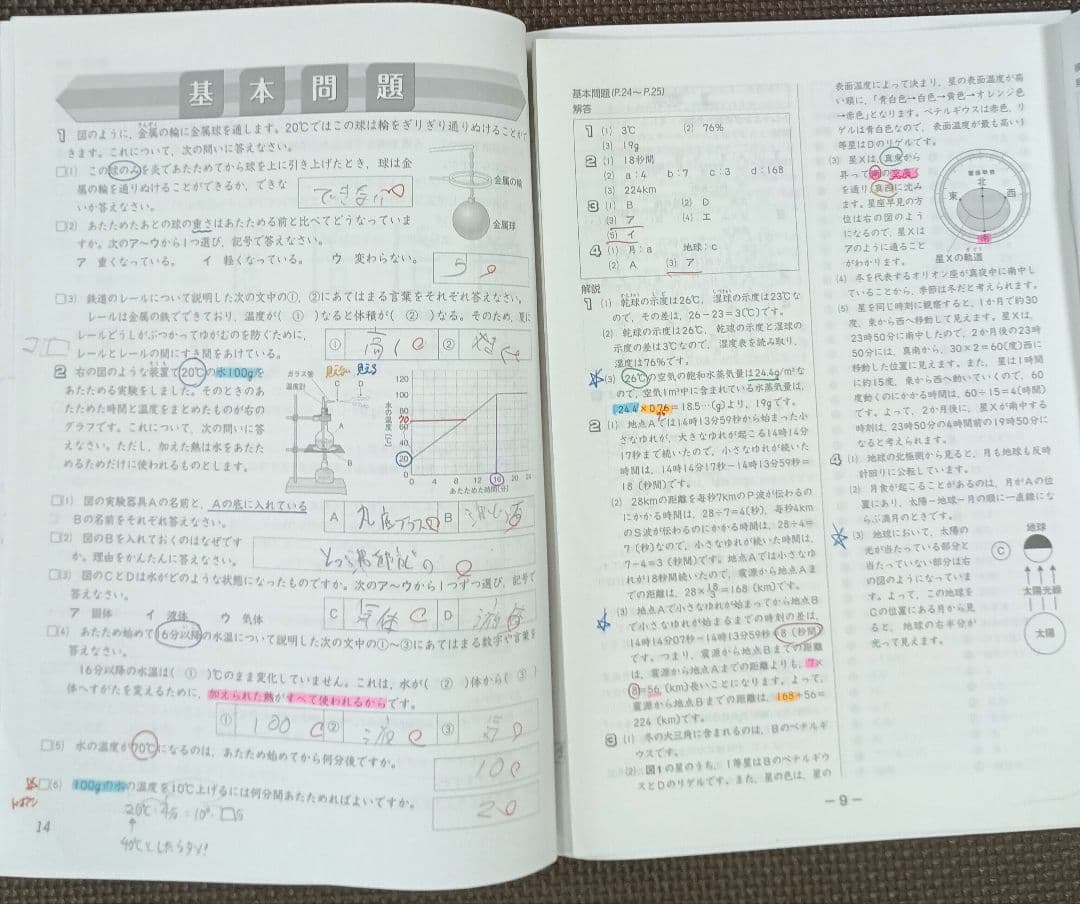 基本問題
1 図のように、金属の輪に金属球を通します。20℃ではこの球は輪をぎりぎり通りぬけることが
きます。これについて、次の問いに答えなさい。
□(1) この球のみを炎であたためてから球を上に引き上げたとき、球は金
属の輪を通りぬけることができるか、できな
いか答えなさい。
できない
金属の輪
金属球
□(2) あたためたあとの球の重さはあたためる前と比べてどうなっていま
すか。次のア〜ウから1つ選び、記号で答えなさい。
ア 重くなっている。 イ 軽くなっている。 ウ 変わらない。
□(3) 鉄道のレールについて説明した次の文中の①、②にあてはまる言葉をそれぞれ答えなさい。
レールは金属の鉄でできており、温度が( ① )なると体積が( ② )なる。そのため、夏に
レールどうしがぶつかってゆがむのを防ぐために、
レールとレールの間にすき間をあけている。
① 高く ②
2 右の図のような装置で20℃の水100gを
あたためる実験をしました。そのときのあ
たためた時間と温度をまとめたものが右の
グラフです。これについて、次の問いに答
えなさい。ただし、加えた熱は水をあたた
めるためだけに使われるものとします。
ガラス管
温度計
見えない 見える
C D
A
B
水の温度(℃)
120
100
80
70
60
40
20
0
0 4 8 12 16 20 24
あたためた時間(分)
□(1) 図の実験器具Aの名前と、Aの底に入れている
Bの名前をそれぞれ答えなさい。
A 丸底フラスコ B
□(2) 図のBを入れておくのはなぜです
か。理由をかんたんに答えなさい。
□(3) 図のCとDは水がどのような状態になったものですか。次のア〜ウから1つずつ選び、記号で
答えなさい。
ア 固体 イ 液体 ウ 気体
C 気体 D 液体
□(4) あたため始めて16分以降の水温について説明した次の文中の①〜③にあてはまる数字や言葉を
答えなさい。
16分以降の水温は( ① )℃のまま変化していません。これは、水が( ② )体から( ③ )
体へすがたを変えるために、加えられた熱がすべて使われるからです。
① 100 ② 液 ③
□(5) 水の温度が70℃になるのは、あたため始めてから何分後ですか。
10
□(6) 100gの水の温度を10℃上げるには何分間あたためればよいですか。
2
20℃:4分=10℃:□分
↑
40℃としたらダメ!
14
基本問題(P.24〜P.25)
解答
1 (1) 3℃ (2) 76%
(3) 19g
2 (1) 18秒間
(2) a:4 b:7 c:3 d:168
(3) 224km
3 (1) B (2) D
(3) ア (4) エ
(5) イ
4 (1) 月:a 地球:c
(2) A (3) ア
解説
1 (1) 乾球の示度は26℃、湿球の示度は23℃な
ので、その差は、26−23=3(℃)です。
(2) 乾球の示度は26℃、乾球の示度と湿球の
示度の差は3℃なので、湿度表を読み取り、
湿度は76%です。
(3) 26℃の空気の飽和水蒸気量は24.4g/m³な
ので、空気1m³中に含まれている水蒸気量は、
24.4×0.76=18.5…(g)より、19gです。
2 (1) 地点Aでは14時13分59秒から始まった小
さなゆれが、大きなゆれが起こる14時14分
17秒まで続いたので、小さなゆれが続いた
時間は、14時14分17秒−14時13分59秒=
18(秒間)です。
(2) 28kmの距離を毎秒7kmのP波が伝わるの
にかかる時間は、28÷7=4(秒)、毎秒4km
のS波が伝わるのにかかる時間は、28÷4=
7(秒)なので、小さなゆれが続いた時間は、
7−4=3(秒間)です。地点Aでは小さなゆ
れが18秒間続いたので、震源から地点Aま
での距離は、28×18/3=168(km)です。
(3) 地点Aで小さなゆれが始まってから地点B
で小さなゆれが始まるまでの時刻の差は、
14時14分07秒−14時13分59秒=8(秒間)
です。つまり、震源から地点Bまでの距離
は、震源から地点Aまでの距離よりも、7×
8=56(km)長いことになります。よって、
震源から地点Bまでの距離は、168+56=
224(km)です。
3 (1) 冬の大三角に含まれるのは、Bのベテルギ
ウスです。
(2) 図1の星のうち、1等星はBのベテルギウ
スとDのリゲルです。また、星の色は、星の
表面温度によって決まり、星の表面温度が高
い順に、「青白色→白色→黄色→オレンジ色
→赤色」となります。ベテルギウスは赤色、リ
ゲルは青白色なので、表面温度が最も高い1
等星はDのリゲルです。
(3) 星Xは、真東から
昇って南の天頂
を通り、真西に沈み
ます。星座早見の方
位は右の図のよう
になるので、星Xは
アのように通ること
がわかります。
星座早見
北
東
西
南
星Xの軌道
(4) 冬を代表するオリオン座が真夜中に南中し
ていることから、季節は冬だと考えられます。
(5) 星を同じ時刻に観察すると、1か月で約30
度、東から西へ移動して見えます。星Xは、
23時50分に南中したので、2か月後の23時
50分には、真南から、30×2=60(度)西に
移動した位置に見えます。また、星は1時間
に約15度、東から西へ動いていくので、60
度動くのにかかる時間は、60÷15=4(時間)
です。よって、2か月後に、星Xが南中する
時刻は、23時50分の4時間前の19時50分に
なると考えられます。
4 (1) 地球の北極側から見ると、月も地球も反時
計回りに公転しています。
(2) 月食が起こることがあるのは、月がAの位
置にあり、太陽−地球−月の順に一直線になら
ぶ満月のときです。
(3) 地球において、太陽の
光が当たっている部分と
当たっていない部分は右
の図のようになっていま
す。よって、この地球を
Cの位置にある月から見
ると、地球の右半分が
光って見えます。
地球
C
太陽光線
太陽
−9−